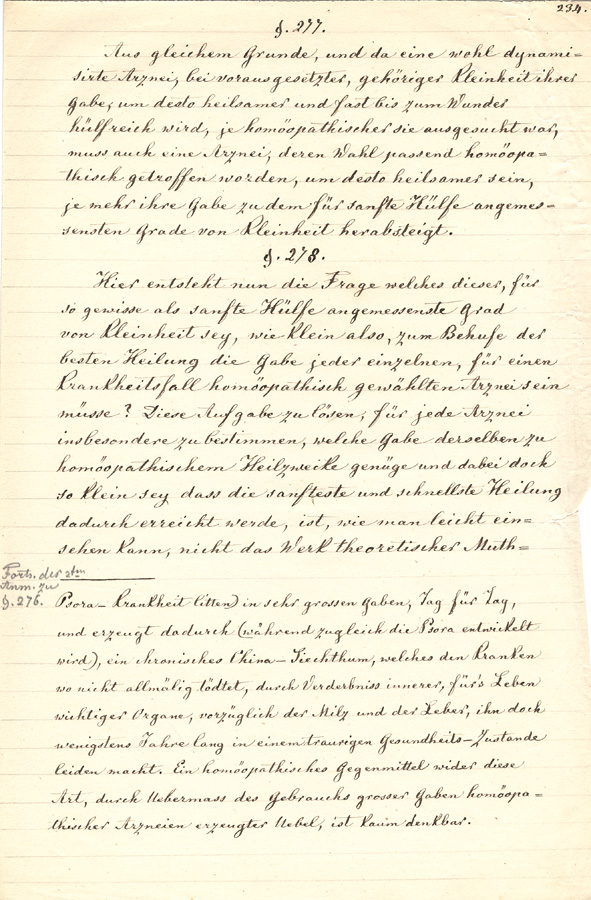 234.
§. 277.
Aus gleichem Grunde, und da eine wohl dynami=
sirte Arznei, bei vorausgesetzter, gehöriger Kleinheit ihrer
Gabe, um desto heilsamer und fast bis zum Wunder
hülfreich wird, je homöopathischer sie ausgesucht war,
muss auch eine Arznei, deren Wahl passend homöopa=
thisch getroffen worden, um desto heilsamer sein,
je mehr ihre Gabe zu dem für sanfte Hülfe angemes=
sensten Grade von Kleinheit herabsteigt.
§. 278.
Hier entsteht nun die Frage welches dieser, für
so gewisse als sanfte Hülfe angemessenste Grad
von Kleinheit sey, wie klein also, zum Behufe der
besten Heilung die Gabe jeder einzelnen, für einen
Krankheitsfall homöopathisch gewählten Arznei sein
müsse? Diese Aufgabe zu lösen, für jede Arznei
insbesondere zu bestimmen, welche Gabe derselben zu
homöopathischem Heilzwecke genüge und dabei doch
so klein sey dass die sanfteste und schnellste Heilung
dadurch erreicht werde, ist, wie man leicht ein=
sehen kann, nicht das Werk theoretischer Muth=
Forts. der 2ten
Anm. zu
§. 276.
Psora-Krankheit litten) in sehr grossen Gaben, Tag für Tag,
und erzeugt dadurch (während zugleich die Psora entwickelt
wird), ein chronisches China-Siechthum, welches den Kranken
wo nicht allmälig tödtet, durch Verderbniss innerer, für's Leben
wichtiger Organe, vorzüglich der Milz und der Leber, ihn doch
wenigstens Jahre lang in einem traurigen Gesundheits-Zustande
leiden macht. Ein homöopathisches Gegenmittel wider diese
Art, durch Uebermass des Gebrauchs grosser Gaben homöopa=
thischer Arzneien erzeugter Uebel, ist kaum denkbar.